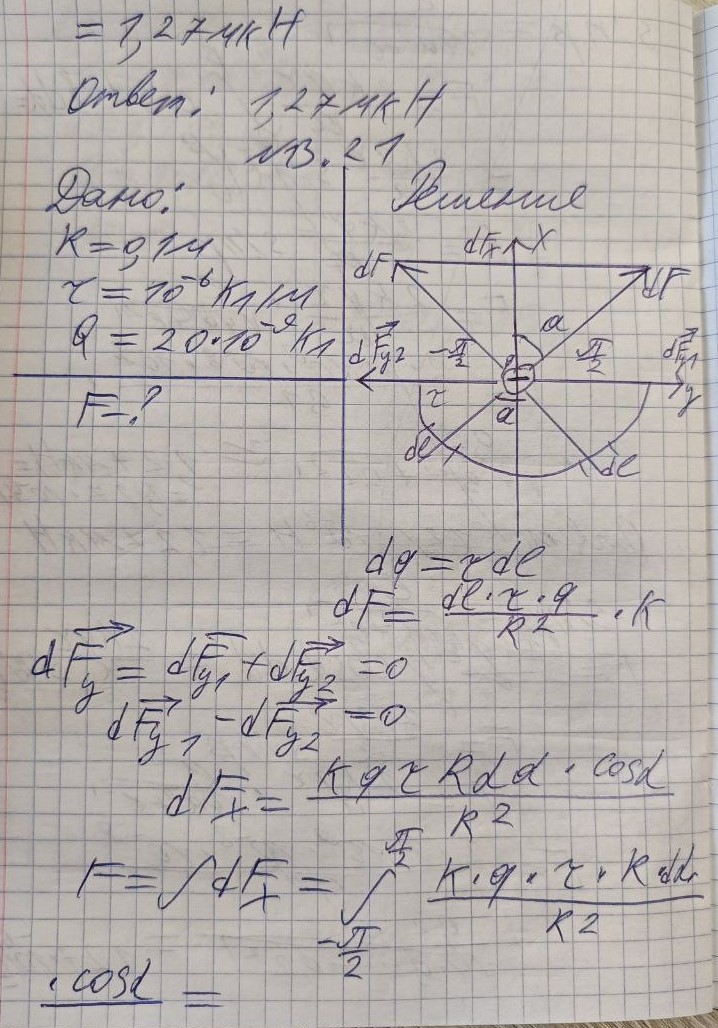 = 1,27 мкН
Ответ: 1,27 мкН
№3.21
Дано: Решение
R = 0,1 м
τ = 10⁻⁶ Кл/м
Q = 20·10⁻⁹ Кл
F - ?
dFₓ X
dF dF
α
dF⃗y2 -π/2 π/2 dF⃗y1
τ α y
dl dl
dq = τ dl
dF = (dl·τ·q)/R² · K
dF⃗y = dF⃗y1 + dF⃗y2 = 0
dF⃗y1 - dF⃗y2 = 0
dFₓ = (K q τ R dα · cosα)/R²
F = ∫dFₓ = ∫_{-π/2}^{π/2} (K·q·τ·R·dα·)/R²
·cosα =